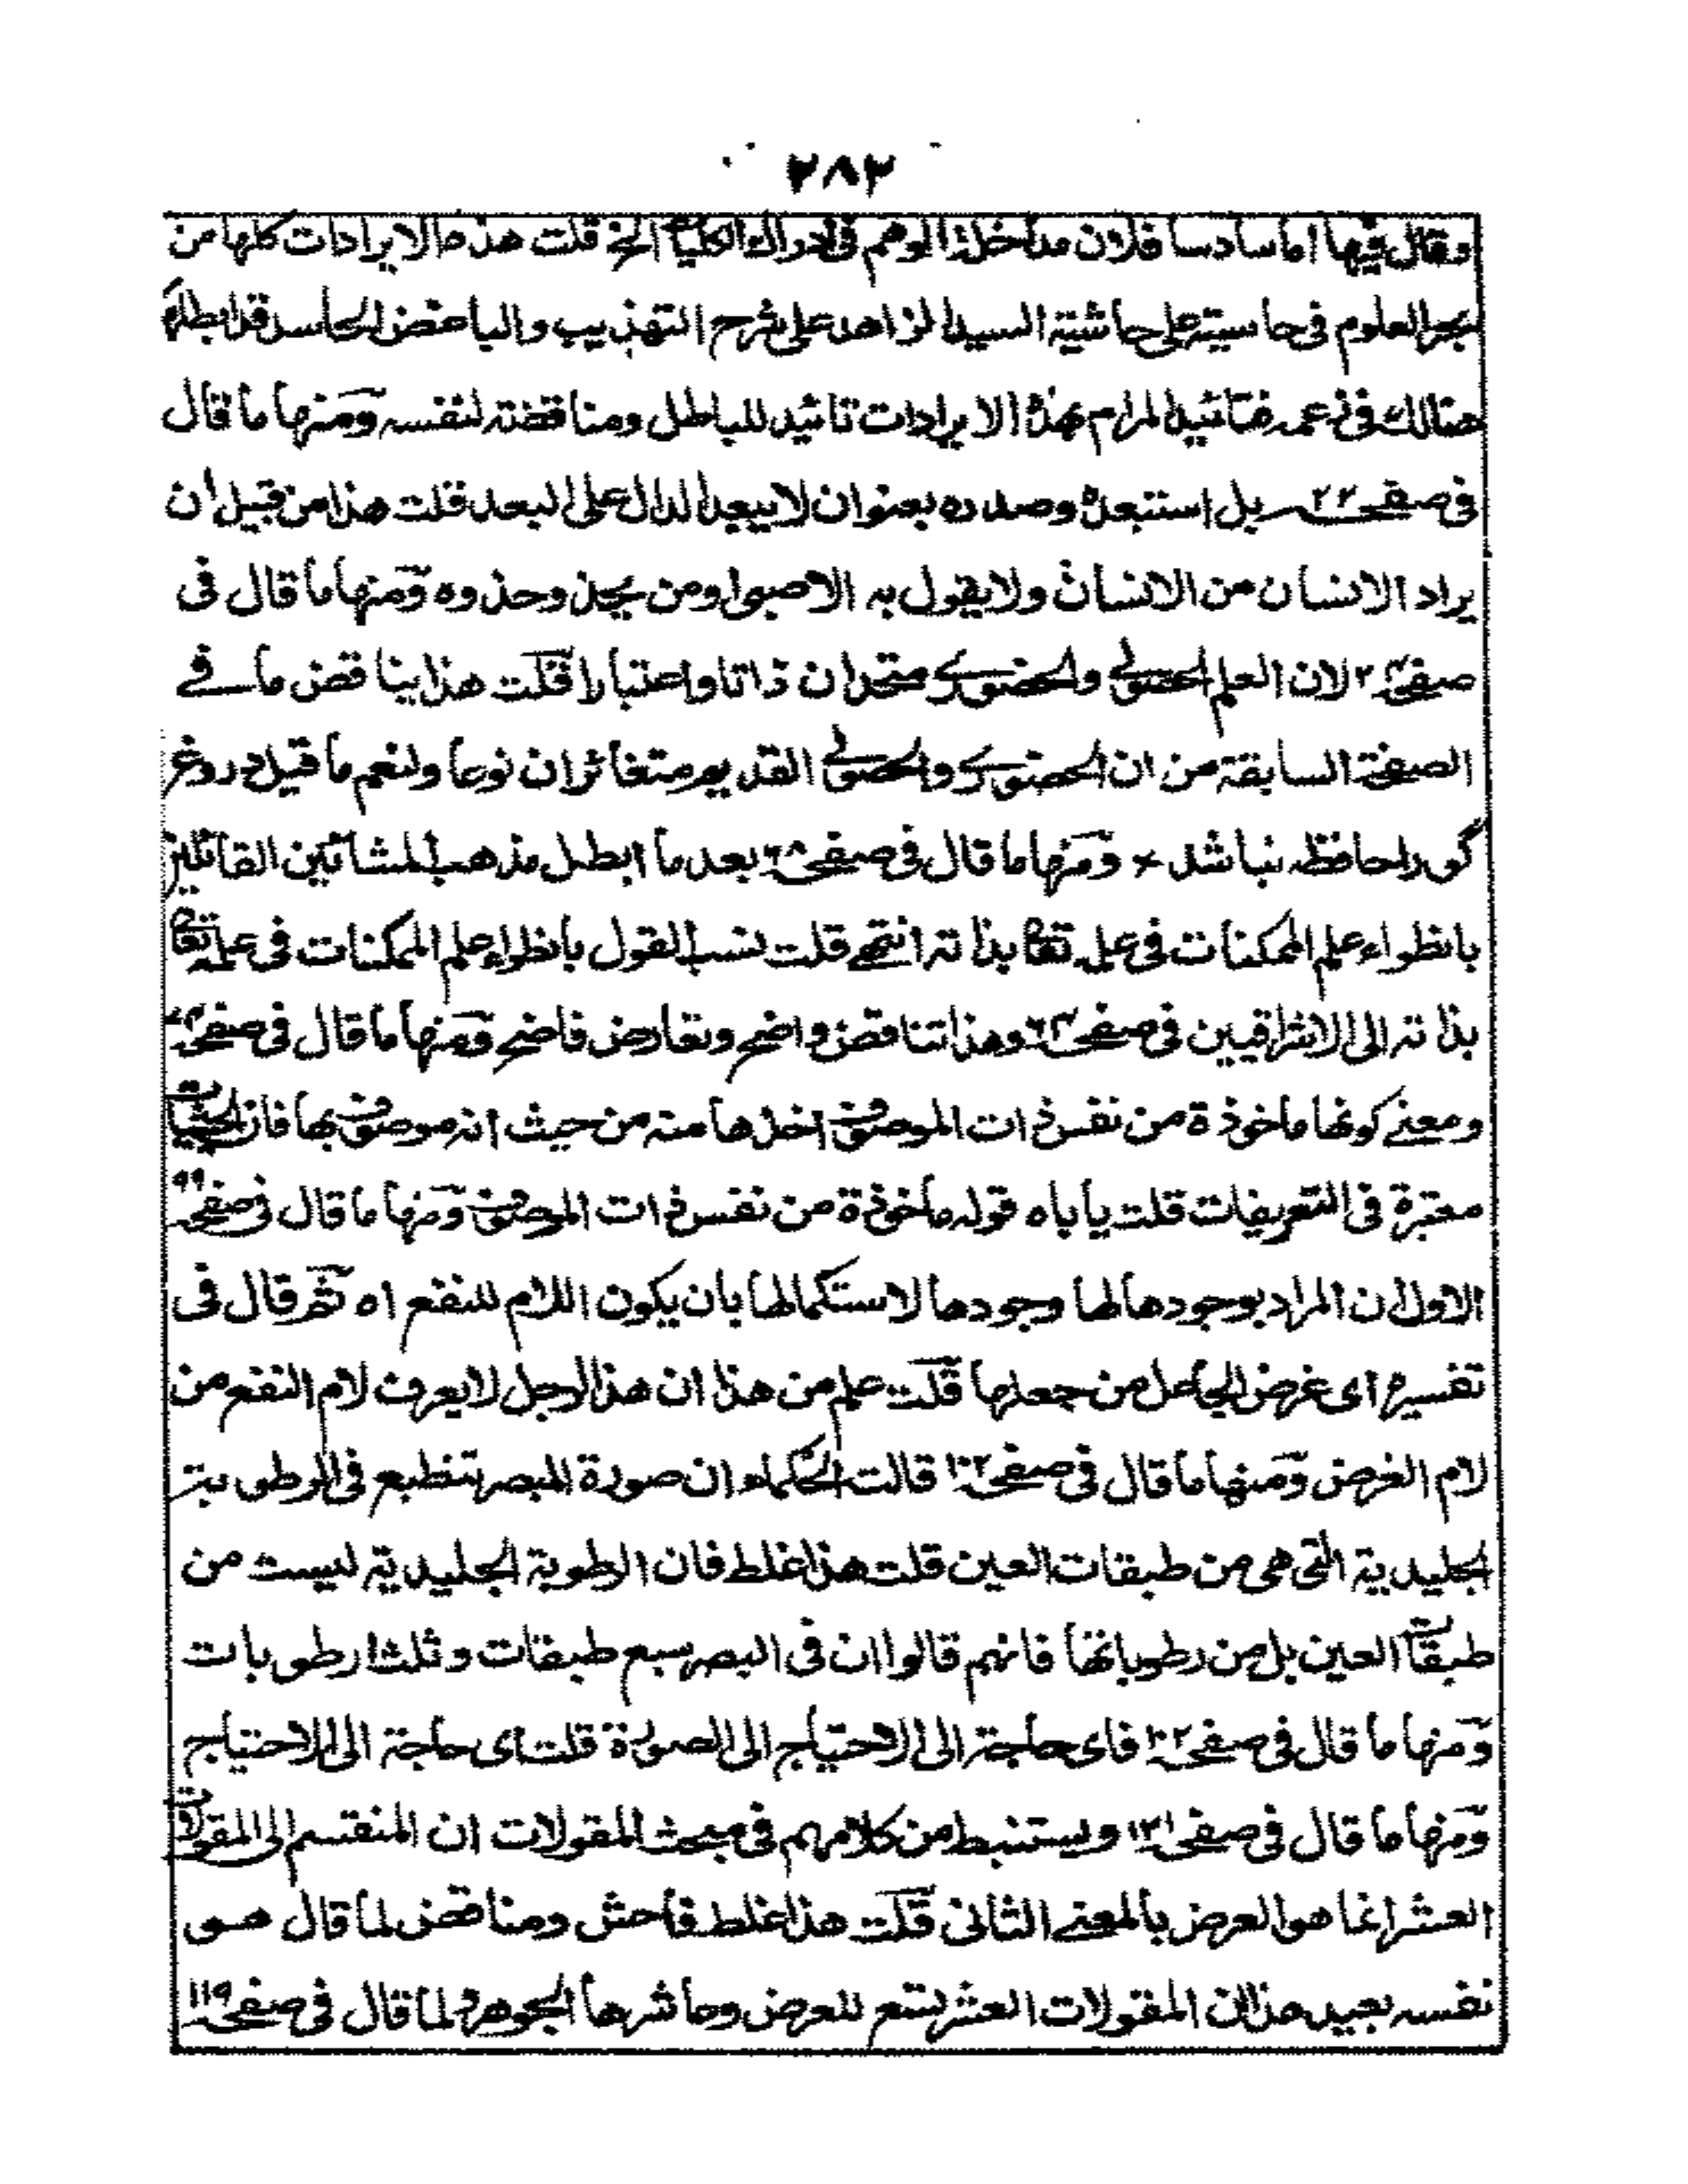 ٢٨٢
وقال فيها اما سادسا فلان مداخلة الوهم فى ادراك الكليات الخ قلت هذه الايرادات كلها من
بحر العلوم فى حاشيته على حاشية السيد الزاهد على شرح التهذيب والباغض الحاسد قد ابطله
هنالك فى زعمه فتائيد المرام بهذه الايرادات تائيد للباطل ومناقضة لنفسه ومنها ما قال
فى صفحه ٢٢ بل استبعده وصدره بعنوان لا يبعد الدال على البعد قلت هذا من قبيل ان
يراد الانسان من الانسان ولا يقول به الا صبى او من يحذو حذوه ومنها ما قال فى
صفحه لان العلم الحصولى والحضورى متحدان ذاتا واعتبارا قلت هذا يناقض ما فى
الصفحة السابقة من ان الحضورى والحصولى القديم متغائران نوعا ولنعم ما قيل دروغ
گو را حافظه نباشد ومنها ما قال فى صفحه ٦٨ بعد ما ابطل مذهب المشائين القائلين
بانطواء علم الممكنات فى علمه تعالى بذاته انتهى قلت نسب القول بانطواء علم الممكنات فى علمه تعالى
بذاته الى الاشراقيين فى صفحه وهذا تناقض واضح وتعارض فاضح ومنها ما قال فى صفحه
ومعنى كونها ماخوذة من نفس ذات الموصوف اخذها منه من حيث انه موصوف بها فان الحيثيات
معتبرة فى التعريفات قلت ياباه قوله ماخوذة من نفس ذات الموصوف ومنها ما قال فى صفحه ٩٩
الاول ان المراد بوجودها لها وجودها لاستكمالها بان يكون اللام للنفع اه ثم قال فى
تفسيره اى غرض الجاعل من جعلها قلت علم من هذا ان هذا الرجل لا يعرف لام النفع من
لام الغرض ومنها ما قال فى صفحه ١٠٢ قالت الحكماء ان صورة المبصر تنطبع فى الرطوبة
الجليدية التى هى من طبقات العين قلت هذا غلط فان الرطوبة الجليدية ليست من
طبقات العين بل من رطوباتها فانهم قالوا ان فى البصر سبع طبقات وثلث رطوبات
ومنها ما قال فى صفحه ١٠٢ فاى حاجة الى الاحتياج الى الصورة قلت اى حاجة الى الاحتياج
ومنها ما قال فى صفحه ١٢١ ويستنبط من كلامهم فى مبحث المقولات ان المنقسم الى المقولات
العشر انما هو العرض بالمعنى الثانى قلت هذا غلط فاحش ومناقض لما قال هو
نفسه بعيد هذا ان المقولات العشر تسع للعرض وعاشرها الجوهر ولما قال فى صفحه ١١٩